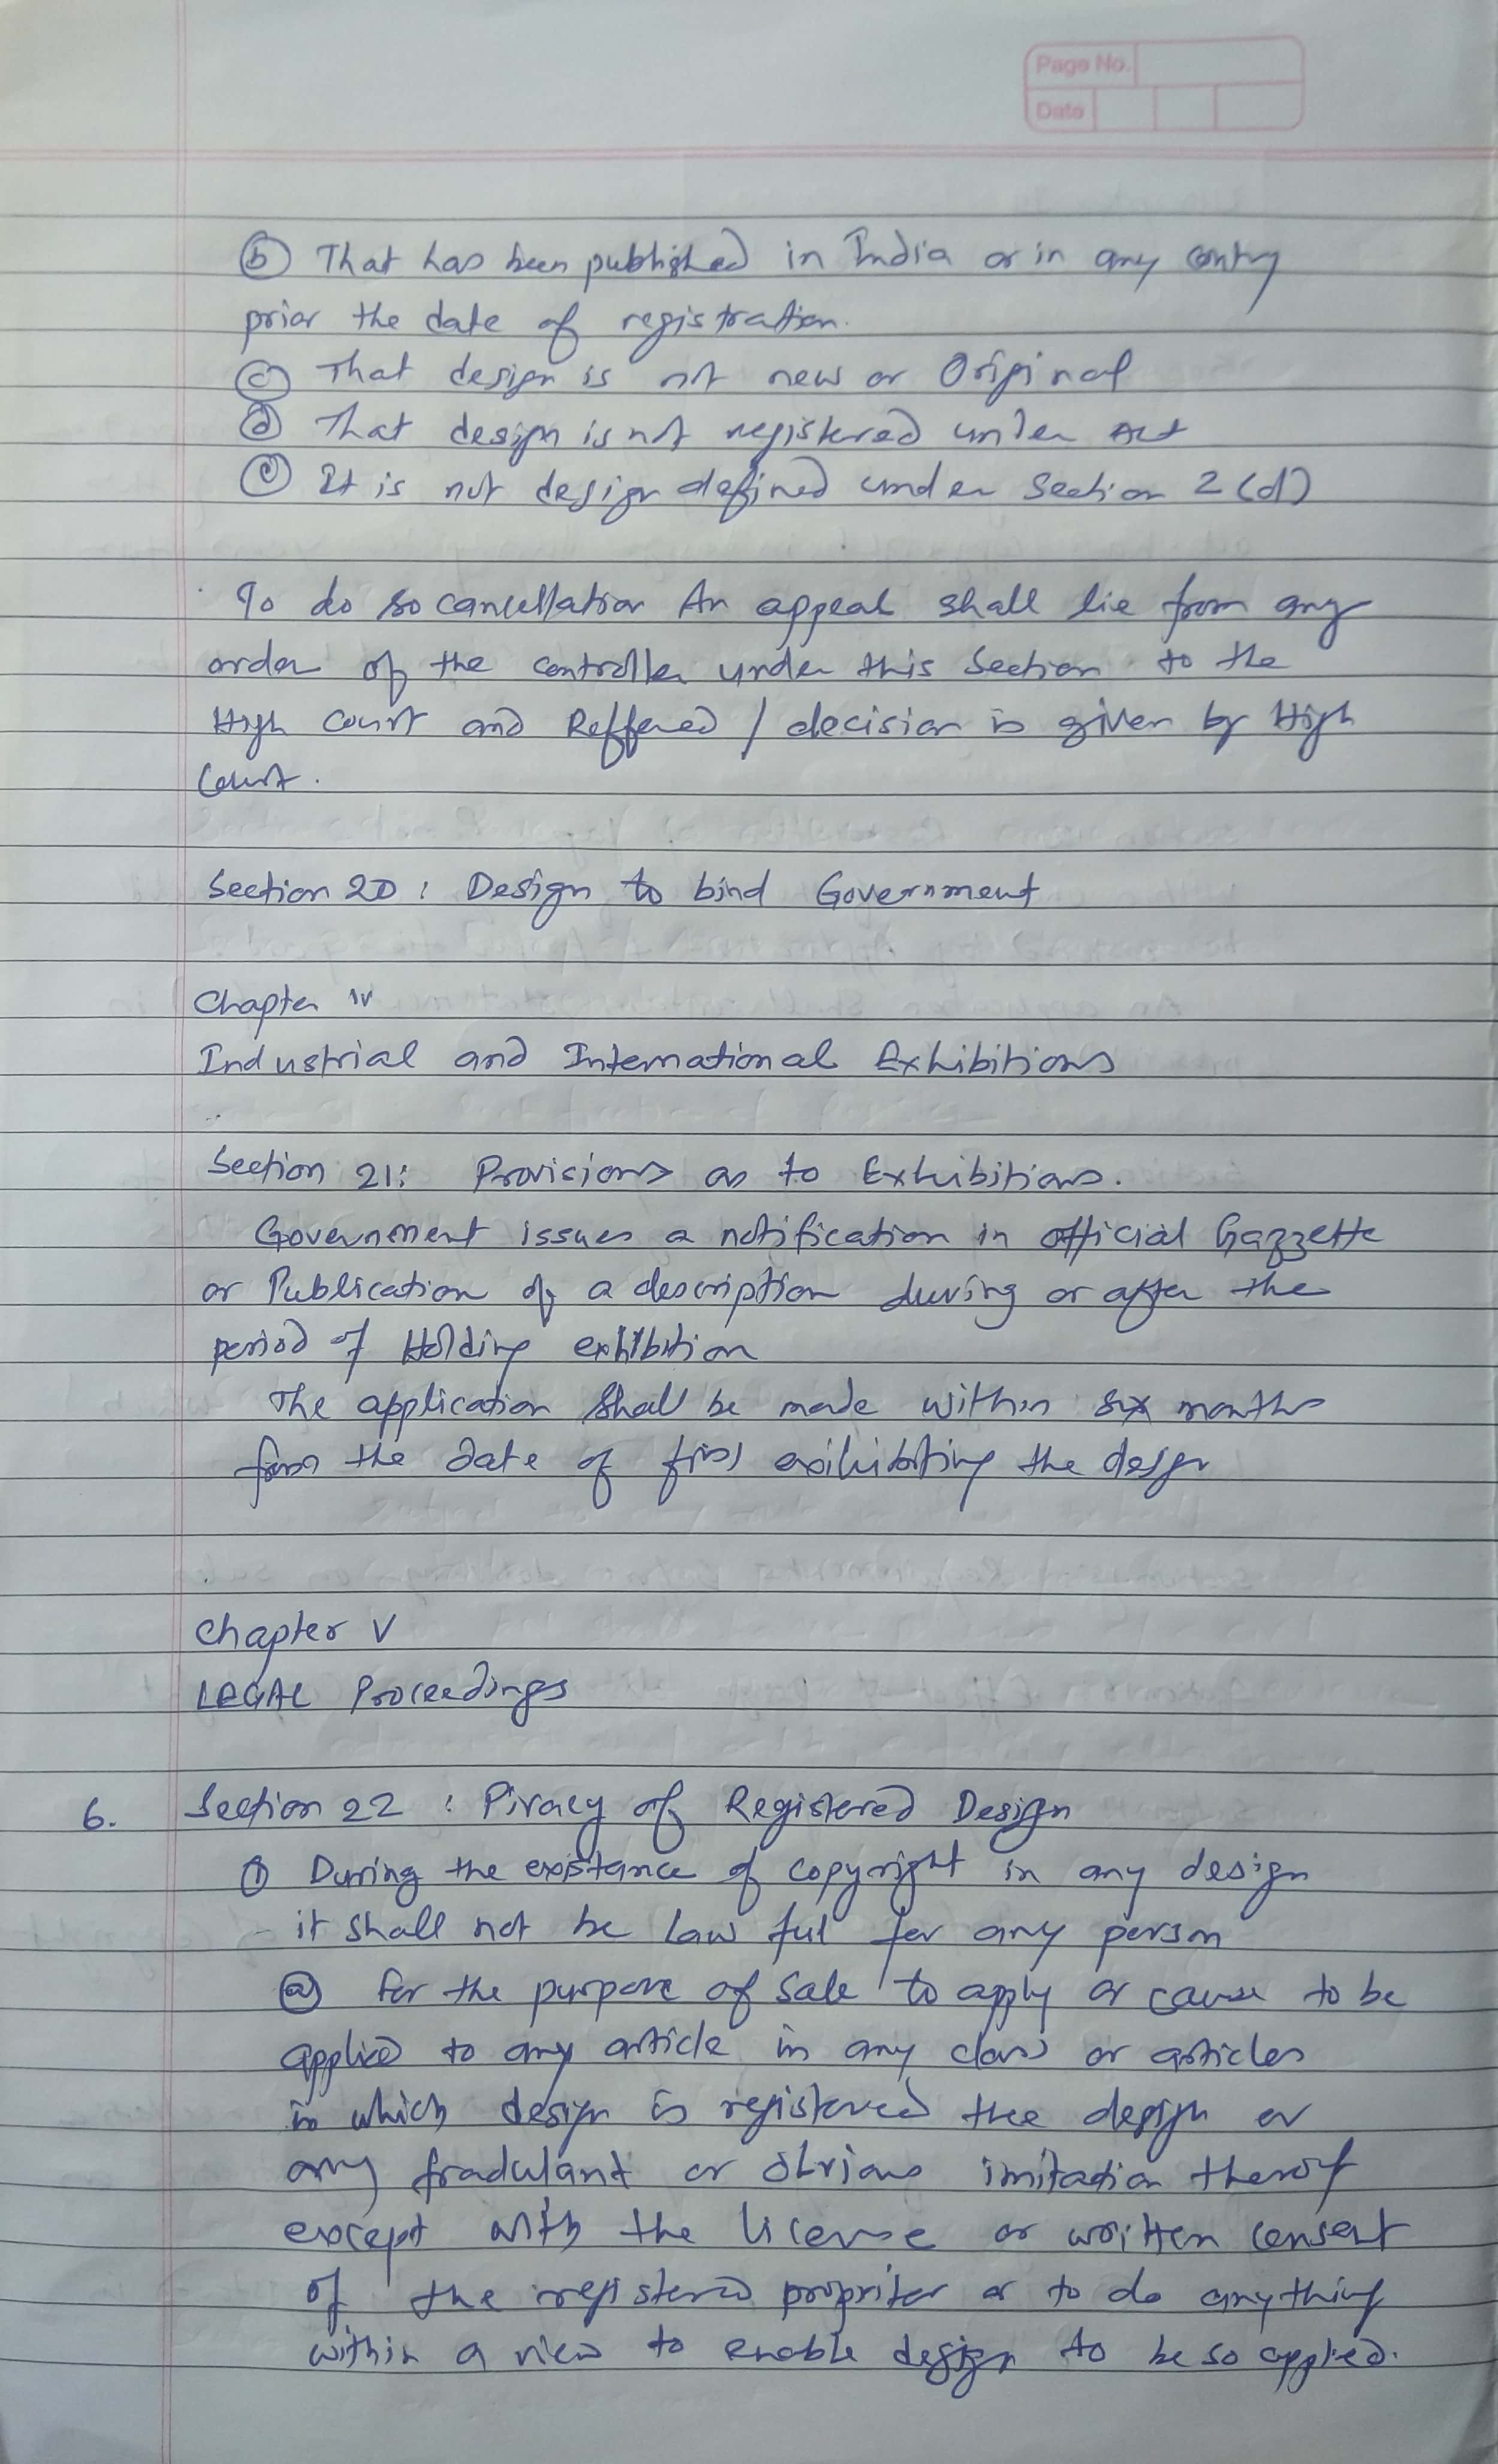 Page No.
Date
ⓑ That has been published in India or in any contry
prior the date of registration.
ⓒ That design is not new or Original
ⓓ That design is not registered under Act
ⓔ It is not design defined under Section 2 (d)
To do so cancellation An appeal shall lie from any
order of the controller under this Section to the
High Court and Reffered / decision is given by High
Court.
Section 20 : Design to bind Government
Chapter IV
Industrial and International Exhibitions
Section 21: Provisions as to Exhibitions.
Government issues a notification in official Gazzette
or Publication of a description during or after the
period of Holding exhibition
The application shall be made within six months
from the date of first exihibiting the design
Chapter V
LEGAL Proceedings
6. Section 22 : Piracy of Registered Design
① During the existance of copyright in any design
- it shall not be lawful for any person
ⓐ for the purpose of sale to apply or cause to be
applied to any article in any class or articles
in which design is registered the design or
any fradulant or obvious imitation therof
except with the license or written consent
of the registered propriter or to do anything
within a view to enable design to be so applied.